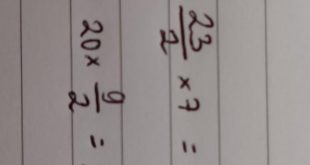 23/2 × 7 =
20 × 9/2 =